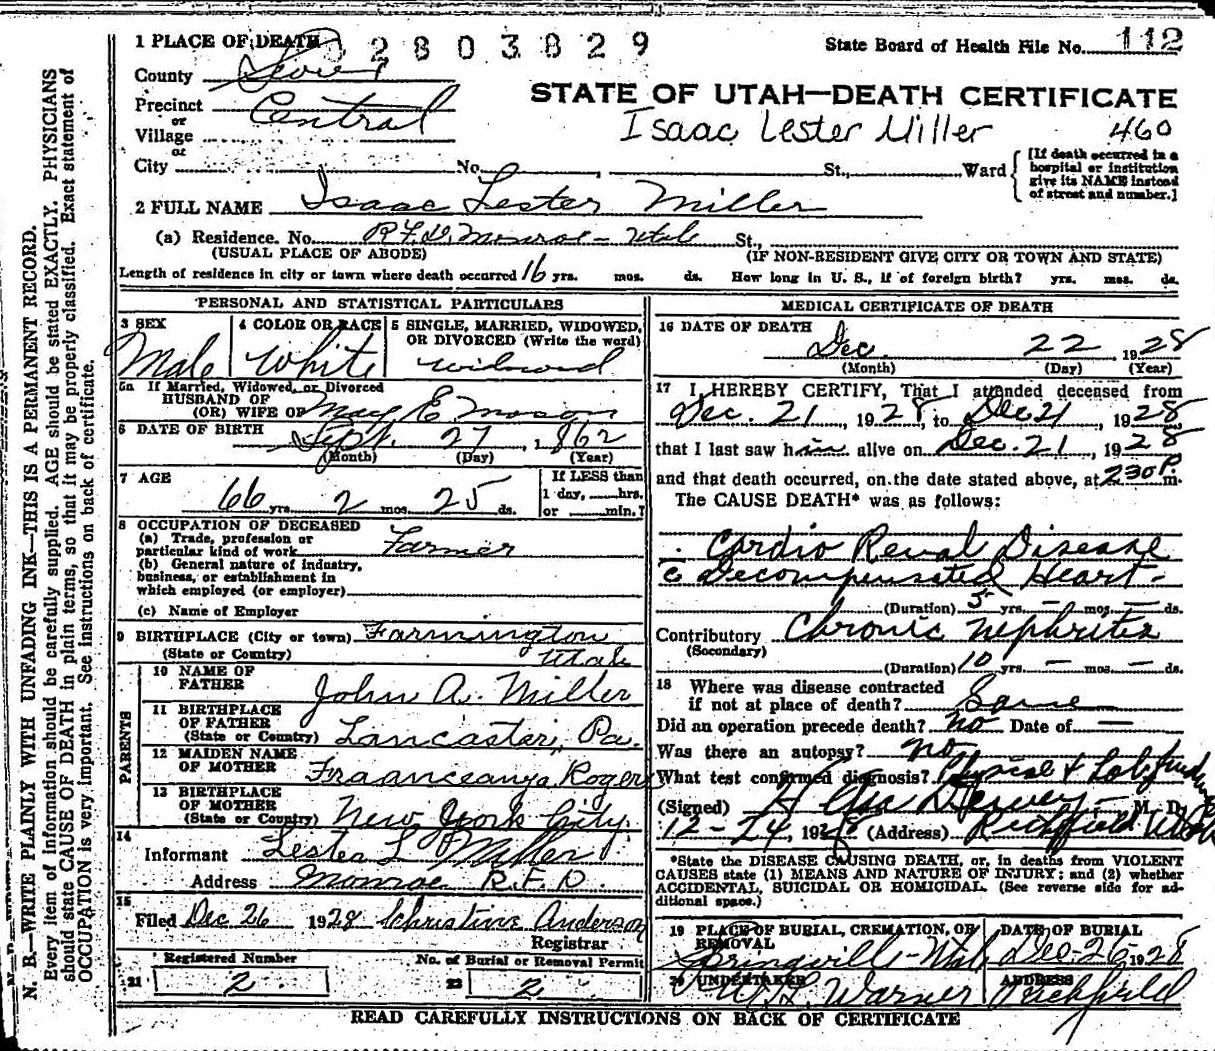 1 PLACE OF DEATH 2803829
State Board of Health File No. 112
County Sevier
STATE OF UTAH—DEATH CERTIFICATE
Precinct Central
or
Village
Isaac Lester Miller 460
or
City No. St., Ward
[If death occurred in a
hospital or institution
give its NAME instead
of street and number.]
2 FULL NAME Isaac Lester Miller
(a) Residence. No. R.F.D. Monroe - Utah St.,
(USUAL PLACE OF ABODE) (IF NON-RESIDENT GIVE CITY OR TOWN AND STATE)
Length of residence in city or town where death occurred 16 yrs. mos. ds. How long in U. S., if of foreign birth? yrs. mos. ds.
PERSONAL AND STATISTICAL PARTICULARS
3 SEX
Male
4 COLOR OR RACE
White
5 SINGLE, MARRIED, WIDOWED,
OR DIVORCED (Write the word)
widowed
5a If Married, Widowed, or Divorced
HUSBAND OF
(OR) WIFE OF May E
6 DATE OF BIRTH Sept. 27 1862
(Month) (Day) (Year)
7 AGE
66 yrs. 2 mos. 25 ds.
If LESS than
1 day, hrs.
or min.?
8 OCCUPATION OF DECEASED
(a) Trade, profession or
particular kind of work Farmer
(b) General nature of industry,
business, or establishment in
which employed (or employer)
(c) Name of Employer
9 BIRTHPLACE (City or town) Farmington
(State or Country) Utah
PARENTS
10 NAME OF
FATHER John A. Miller
11 BIRTHPLACE
OF FATHER
(State or Country) Lancaster, Pa.
12 MAIDEN NAME
OF MOTHER Rogers
13 BIRTHPLACE
OF MOTHER
(State or Country) New York City.
14
Informant Lester L Miller
Address Monroe R.F.D.
15
Filed Dec 26 1928 Christine Anderson
Registrar
Registered Number
21 2
No. of Burial or Removal Permit
22 2
MEDICAL CERTIFICATE OF DEATH
16 DATE OF DEATH
Dec. 22, 1928
(Month) (Day) (Year)
17 I HEREBY CERTIFY, That I attended deceased from
Dec. 21, 1928, to Dec 21, 1928
that I last saw him alive on Dec. 21, 1928
and that death occurred, on the date stated above, at 230 P. m.
The CAUSE DEATH* was as follows:
Cardio Renal Disease
c Decompensated Heart -
(Duration) 5 yrs. — mos. — ds.
Contributory Chronic Nephritis
(Secondary)
(Duration) 10 yrs. — mos. — ds.
18 Where was disease contracted
if not at place of death? Same
Did an operation precede death? no Date of —
Was there an autopsy? no
What test confirmed diagnosis? Physical & Lab findings
(Signed) M. D.
12-24, 1928 (Address) Richfield Utah
*State the DISEASE CAUSING DEATH, or, in deaths from VIOLENT
CAUSES state (1) MEANS AND NATURE OF INJURY; and (2) whether
ACCIDENTAL, SUICIDAL OR HOMICIDAL. (See reverse side for ad-
ditional space.)
19 PLACE OF BURIAL, CREMATION, OR
REMOVAL
Springville - Utah
DATE OF BURIAL
Dec. 26 1928
20 UNDERTAKER
Warner
ADDRESS
Richfield
READ CAREFULLY INSTRUCTIONS ON BACK OF CERTIFICATE
N. B.—WRITE PLAINLY WITH UNFADING INK—THIS IS A PERMANENT RECORD.
Every item of information should be carefully supplied. AGE should be stated EXACTLY. PHYSICIANS
should state CAUSE OF DEATH in plain terms, so that it may be properly classified. Exact statement of
OCCUPATION is very important. See instructions on back of certificate.